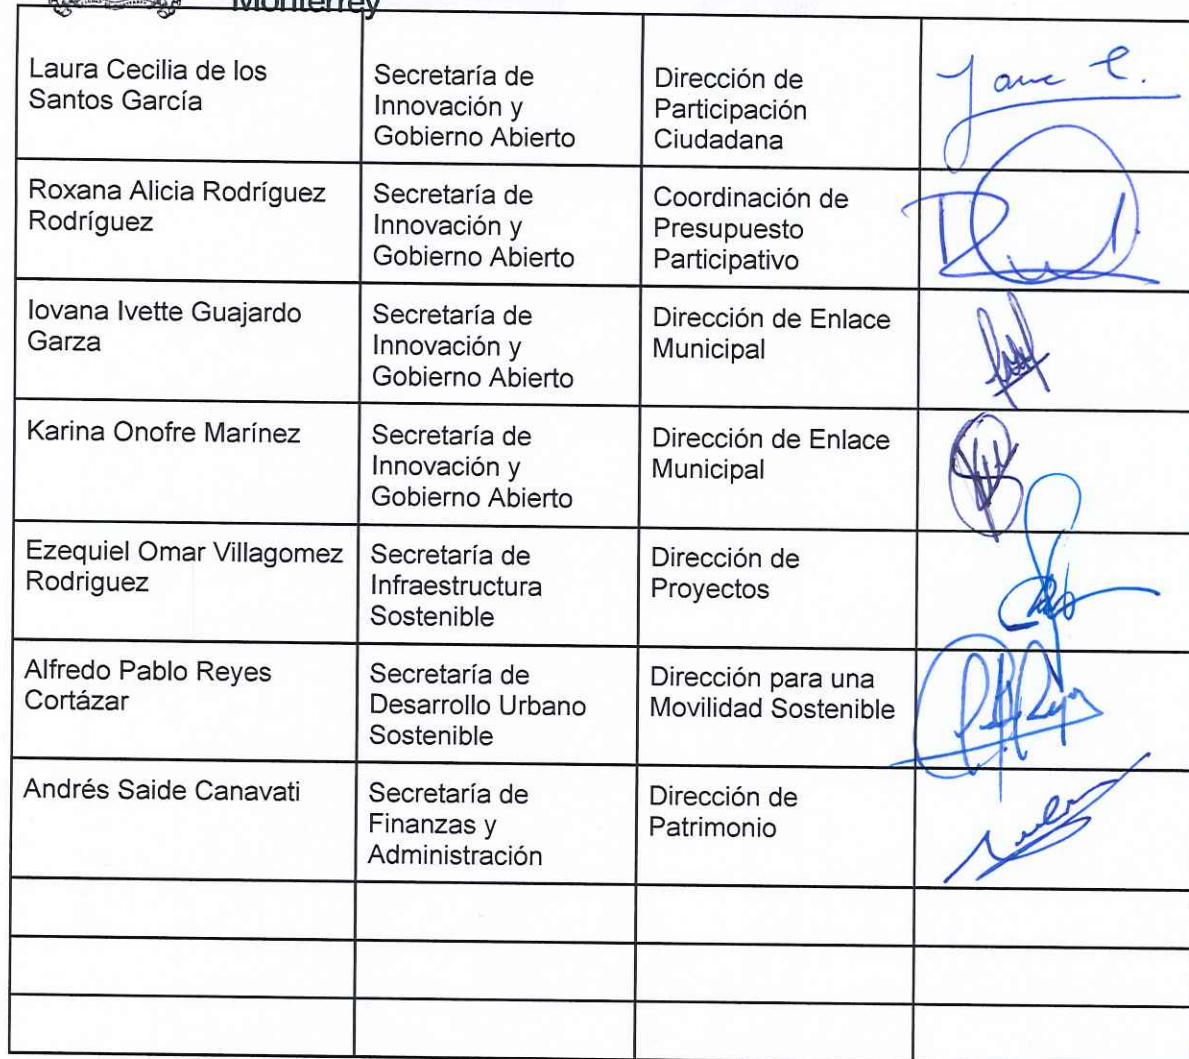 Monterrey
Laura Cecilia de los
Santos García
Secretaría de
Innovación y
Gobierno Abierto
Dirección de
Participación
Ciudadana
Roxana Alicia Rodríguez
Rodríguez
Secretaría de
Innovación y
Gobierno Abierto
Coordinación de
Presupuesto
Participativo
Iovana Ivette Guajardo
Garza
Secretaría de
Innovación y
Gobierno Abierto
Dirección de Enlace
Municipal
Karina Onofre Marínez
Secretaría de
Innovación y
Gobierno Abierto
Dirección de Enlace
Municipal
Ezequiel Omar Villagomez
Rodriguez
Secretaría de
Infraestructura
Sostenible
Dirección de
Proyectos
Alfredo Pablo Reyes
Cortázar
Secretaría de
Desarrollo Urbano
Sostenible
Dirección para una
Movilidad Sostenible
Andrés Saide Canavati
Secretaría de
Finanzas y
Administración
Dirección de
Patrimonio